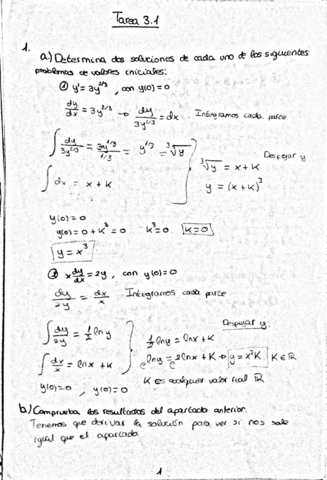 Tarea 3.1
1.
a.) Determina dos soluciones de cada uno de los siguientes
problemas de valores iniciales:
① y' = 3y^{2/3}, con y(0)=0
dy/dx = 3y^{2/3} → dy/3y^{2/3} = dx. Integramos cada parte
∫ dy/3y^{2/3} = 3y^{1/3}/1/3 = y^{1/3} = ∛y
Despejar y
∛y = x + K
∫ dx = x + K
y = (x + K)^3
y(0) = 0
y(0) = 0 + K^3 = 0 K^3 = 0 K = 0
y = x^3
② x dy/dx = 2y, con y(0)=0
dy/2y = dx/x Integramos cada parte
∫ dy/2y = 1/2 ln y
Despejar y.
1/2 ln y = ln x + K
∫ dx/x = ln x + K
e^{ln y} = e^{2 ln x + K} → y = x^2 K K ∈ ℝ
y(0) = 0, y(0) = 0
K es cualquier valor real ℝ
b.) Comprueba los resultados del apartado anterior.
Tenemos que derivar la solución para ver si nos sale
igual que el apartado.
1